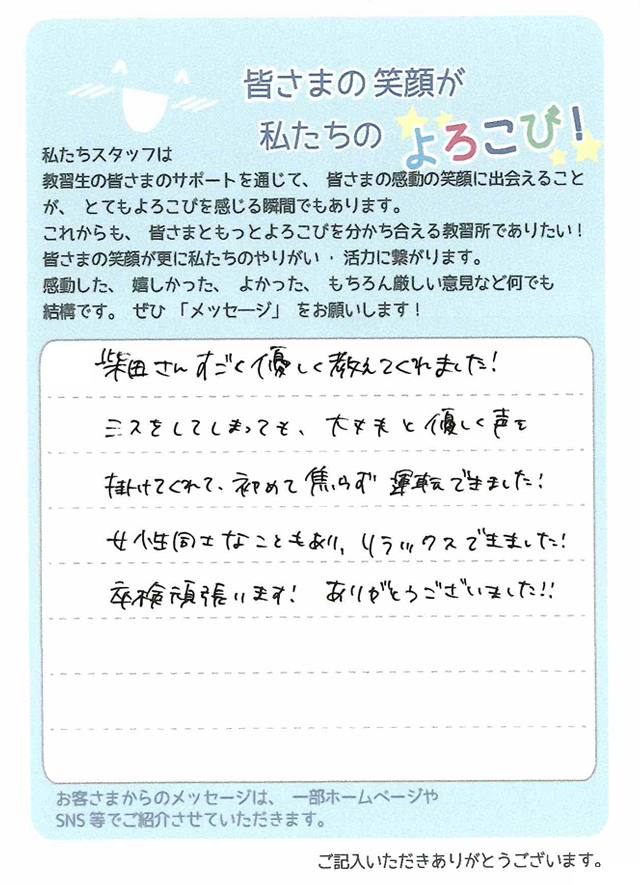 皆さまの笑顔が
私たちの よろこび！
私たちスタッフは
教習生の皆さまのサポートを通じて、 皆さまの感動の笑顔に出会えること
が、 とてもよろこびを感じる瞬間でもあります。
これからも、 皆さまともっとよろこびを分かち合える教習所でありたい！
皆さまの笑顔が更に私たちのやりがい・活力に繋がります。
感動した、 嬉しかった、 よかった、 もちろん厳しい意見など何でも
結構です。 ぜひ 「メッセージ」 をお願いします！
柴田さんすごく優しく教えてくれました！
ミスをしてしまっても、大丈夫と優しく声を
掛けてくれて、初めて焦らず運転できました！
女性同士なこともあり、リラックスできました！
卒検頑張ります！ ありがとうございました！！
お客さまからのメッセージは、 一部ホームページや
SNS等でご紹介させていただきます。
ご記入いただきありがとうございます。